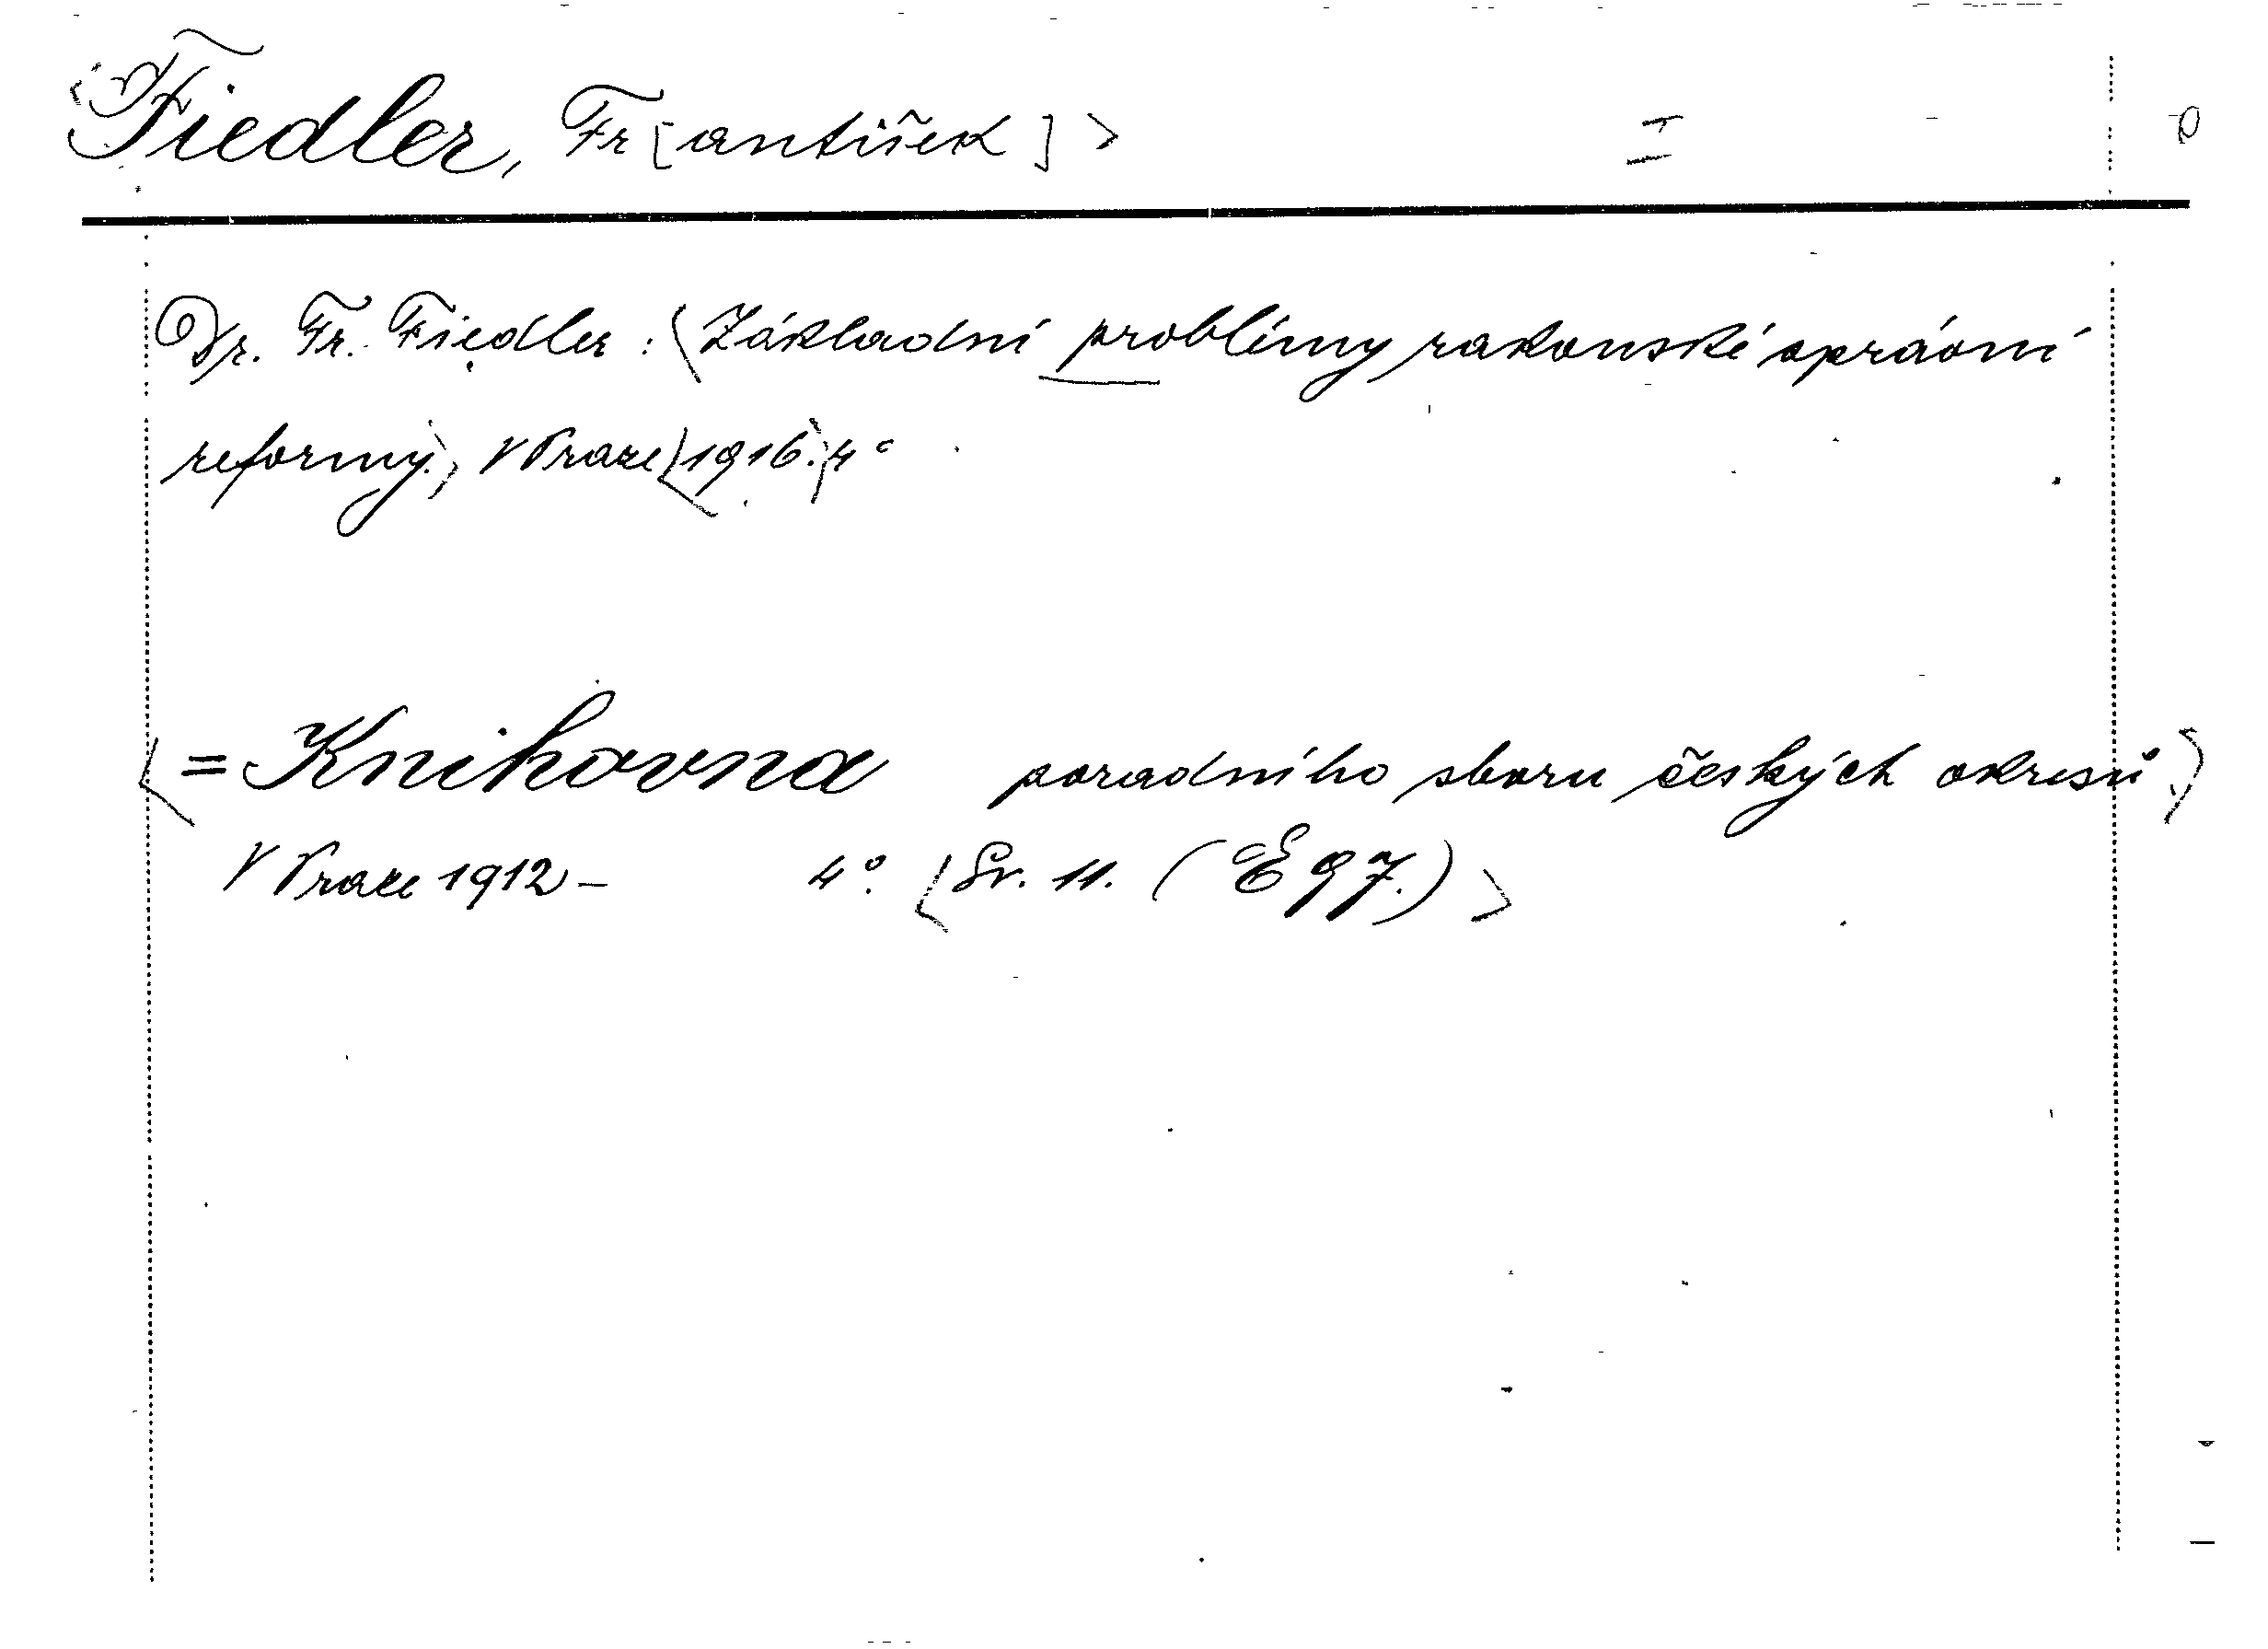 Fiedler, Fr[antišek]>
Dr. Fr. Fiedler: Základní problémy rakouské správní
reformy. V Praze 1916. 4°
= Knihovna poradního sboru českých okresů
V Praze 1912 – 4°. Sv. 11. (E 97.)